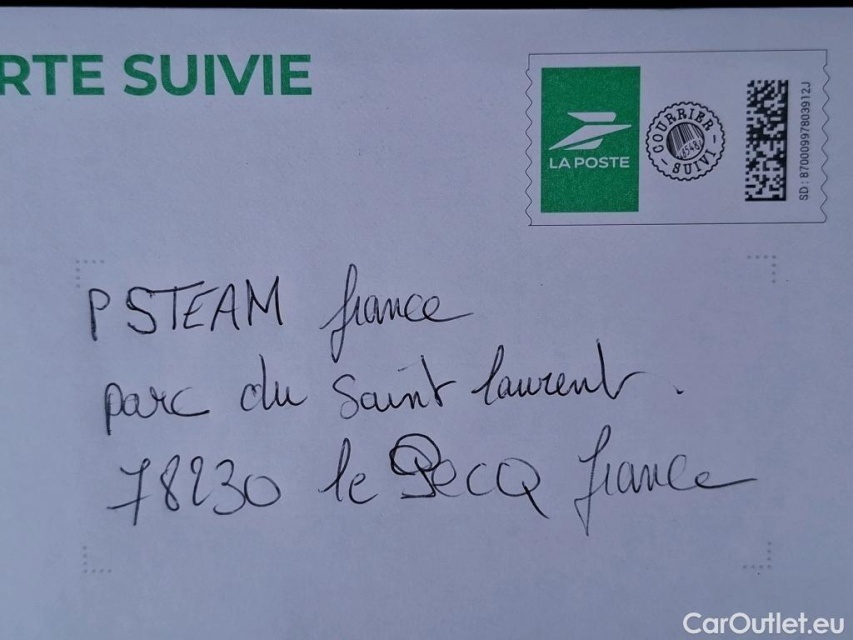 RTE SUIVIE
LA POSTE
COURRIER
SUIVI
SD : 87000997803912J
PSTEAM france
parc du Saint laurent.
78230 le PecQ france
CarOutlet.eu